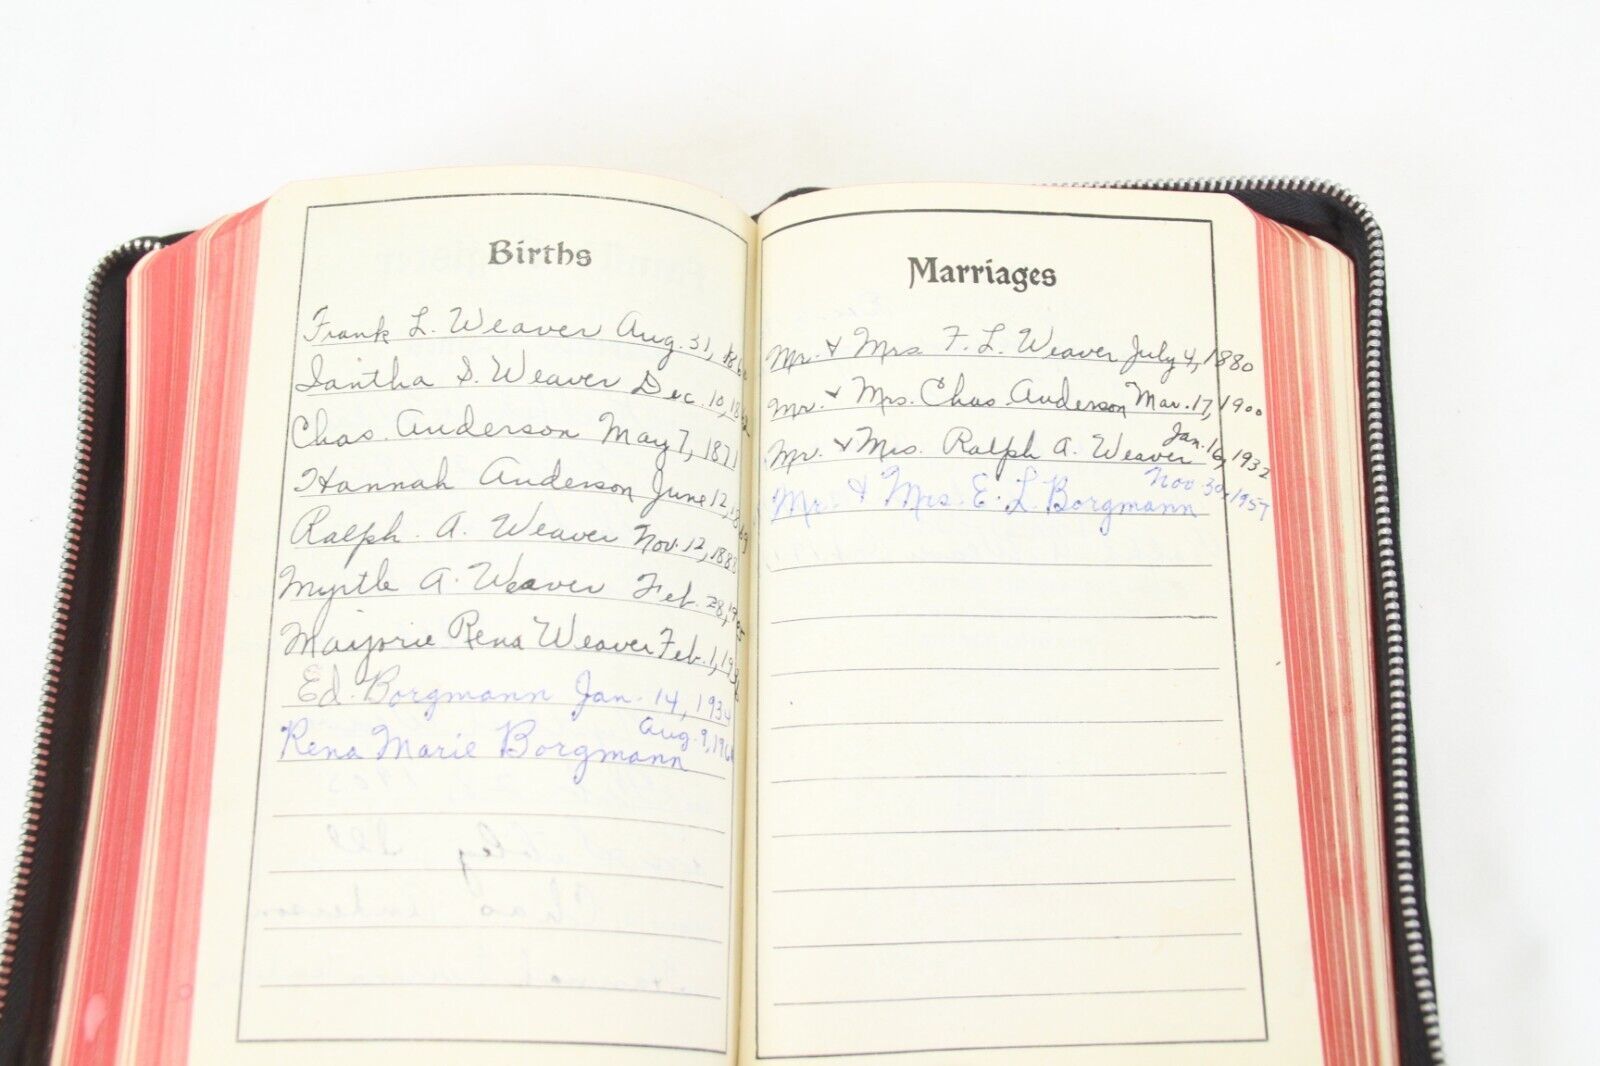 Births
Frank L. Weaver Aug. 31, 186
Iantha S. Weaver Dec. 10, 1862
Chas. Anderson May 7, 1871
Hannah Anderson June 12, 1869
Ralph. A. Weaver Nov. 12, 1888
Myrtle A. Weaver Feb. 28, 1905
Marjorie Rena Weaver Feb. 1, 193
Ed. Borgmann Jan. 14, 1934
Rena Marie Borgmann Aug. 9, 196
Marriages
Mr. & Mrs. F. L. Weaver July 4, 1880
Mr. & Mrs. Chas. Anderson Mar. 17, 1900
Mr. & Mrs. Ralph A. Weaver Jan. 16, 1932
Mr. & Mrs. E. L. Borgmann Nov 30, 1957